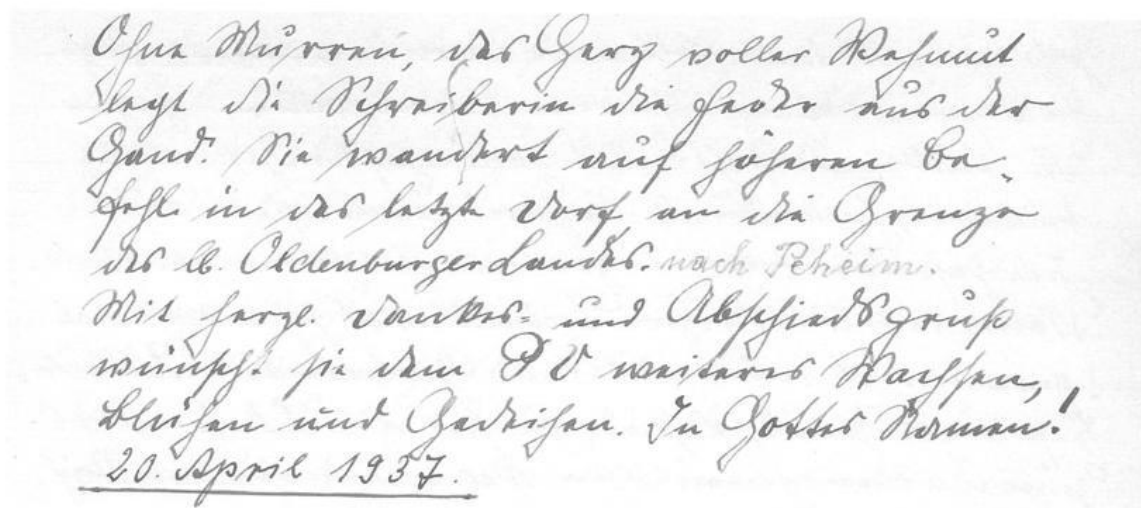 Ohne Murren, das Herz voller Wehmut
legt die Schreiberin die Feder aus der
Hand. Sie wandert auf höheren Be-
fehl in das letzte Dorf an die Grenze
des lb. Oldenburger Landes. nach Peheim.
Mit herzl. Dankes- und Abschiedsgruß
wünscht sie dem J V weiteres Wachsen,
Blühen und Gedeihen. In Gottes Namen!
20. April 1937.